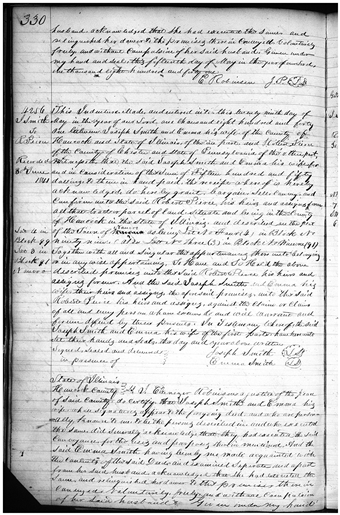 330
husband acknowledged that she had executed the same and
relinquished her dower to the premises therein conveyed voluntarily
freely and without compulsion of her said husband. Given under
my hand and seal this fifteenth day of May in the year of our Lord
one thousand eight hundred and forty one
E Robinson J.P.
This Indenture made and entered into this twenty ninth day of
May in the year of our Lord one thousand eight hundred and forty
one between Joseph Smith and Emma his wife of the County of
Hancock and State of Illinois of the first part and
of the County of Chester and State of Pennsylvania of the other part
Witnesseth that the said Joseph Smith and Emma his wife for
and in consideration of the sum of Fifteen hundred and fifty
dollars to them in hand paid the receipt whereof is hereby
acknowledged do hereby grant bargain sell convey and
confirm unto the said Robert Peirce, his heirs and assigns forever
all that tract or parcel of land situate and being in the County
of Hancock in the State of Illinois and described in the plat
of the Town of Nauvoo as being Lot No Four (4) in Block No
Together with all and singular the appurtenances thereunto belonging
or in any wise appertaining. To Have and To Hold the above
described premises unto the said Robert Peirce his heirs and
assigns forever And the said Joseph Smith and Emma his
wife their heirs and assigns the aforesaid premises unto the said
Robert Peirce his heirs and assigns against the claim or claims
of all and every person whomsoever do and will warrant and
forever defend by these presents. In Testimony whereof the said
Joseph Smith and Emma his wife of the first part have hereunto
set their hands and seals the day and year above written
Signed Sealed and delivered
in presence of
Joseph Smith
Emma Smith
State of Illinois
Hancock County
I Ebenezer Robinson a justice of the peace
of said County do certify that Joseph Smith and Emma his
wife whose signatures appear to the foregoing deed and who are person
ally known to me to be the persons described in and who executed
the same did severally acknowledge that they had executed the said
conveyance for the uses and purposes therein mentioned And the
said Emma Smith having been by me made acquainted with
the contents of the said Deed and examined separate and apart
from her said husband acknowledged that she had executed the
same and relinquished her dower to the premises therein
conveyed voluntarily freely and without compulsion
of her said husband. Given under my hand